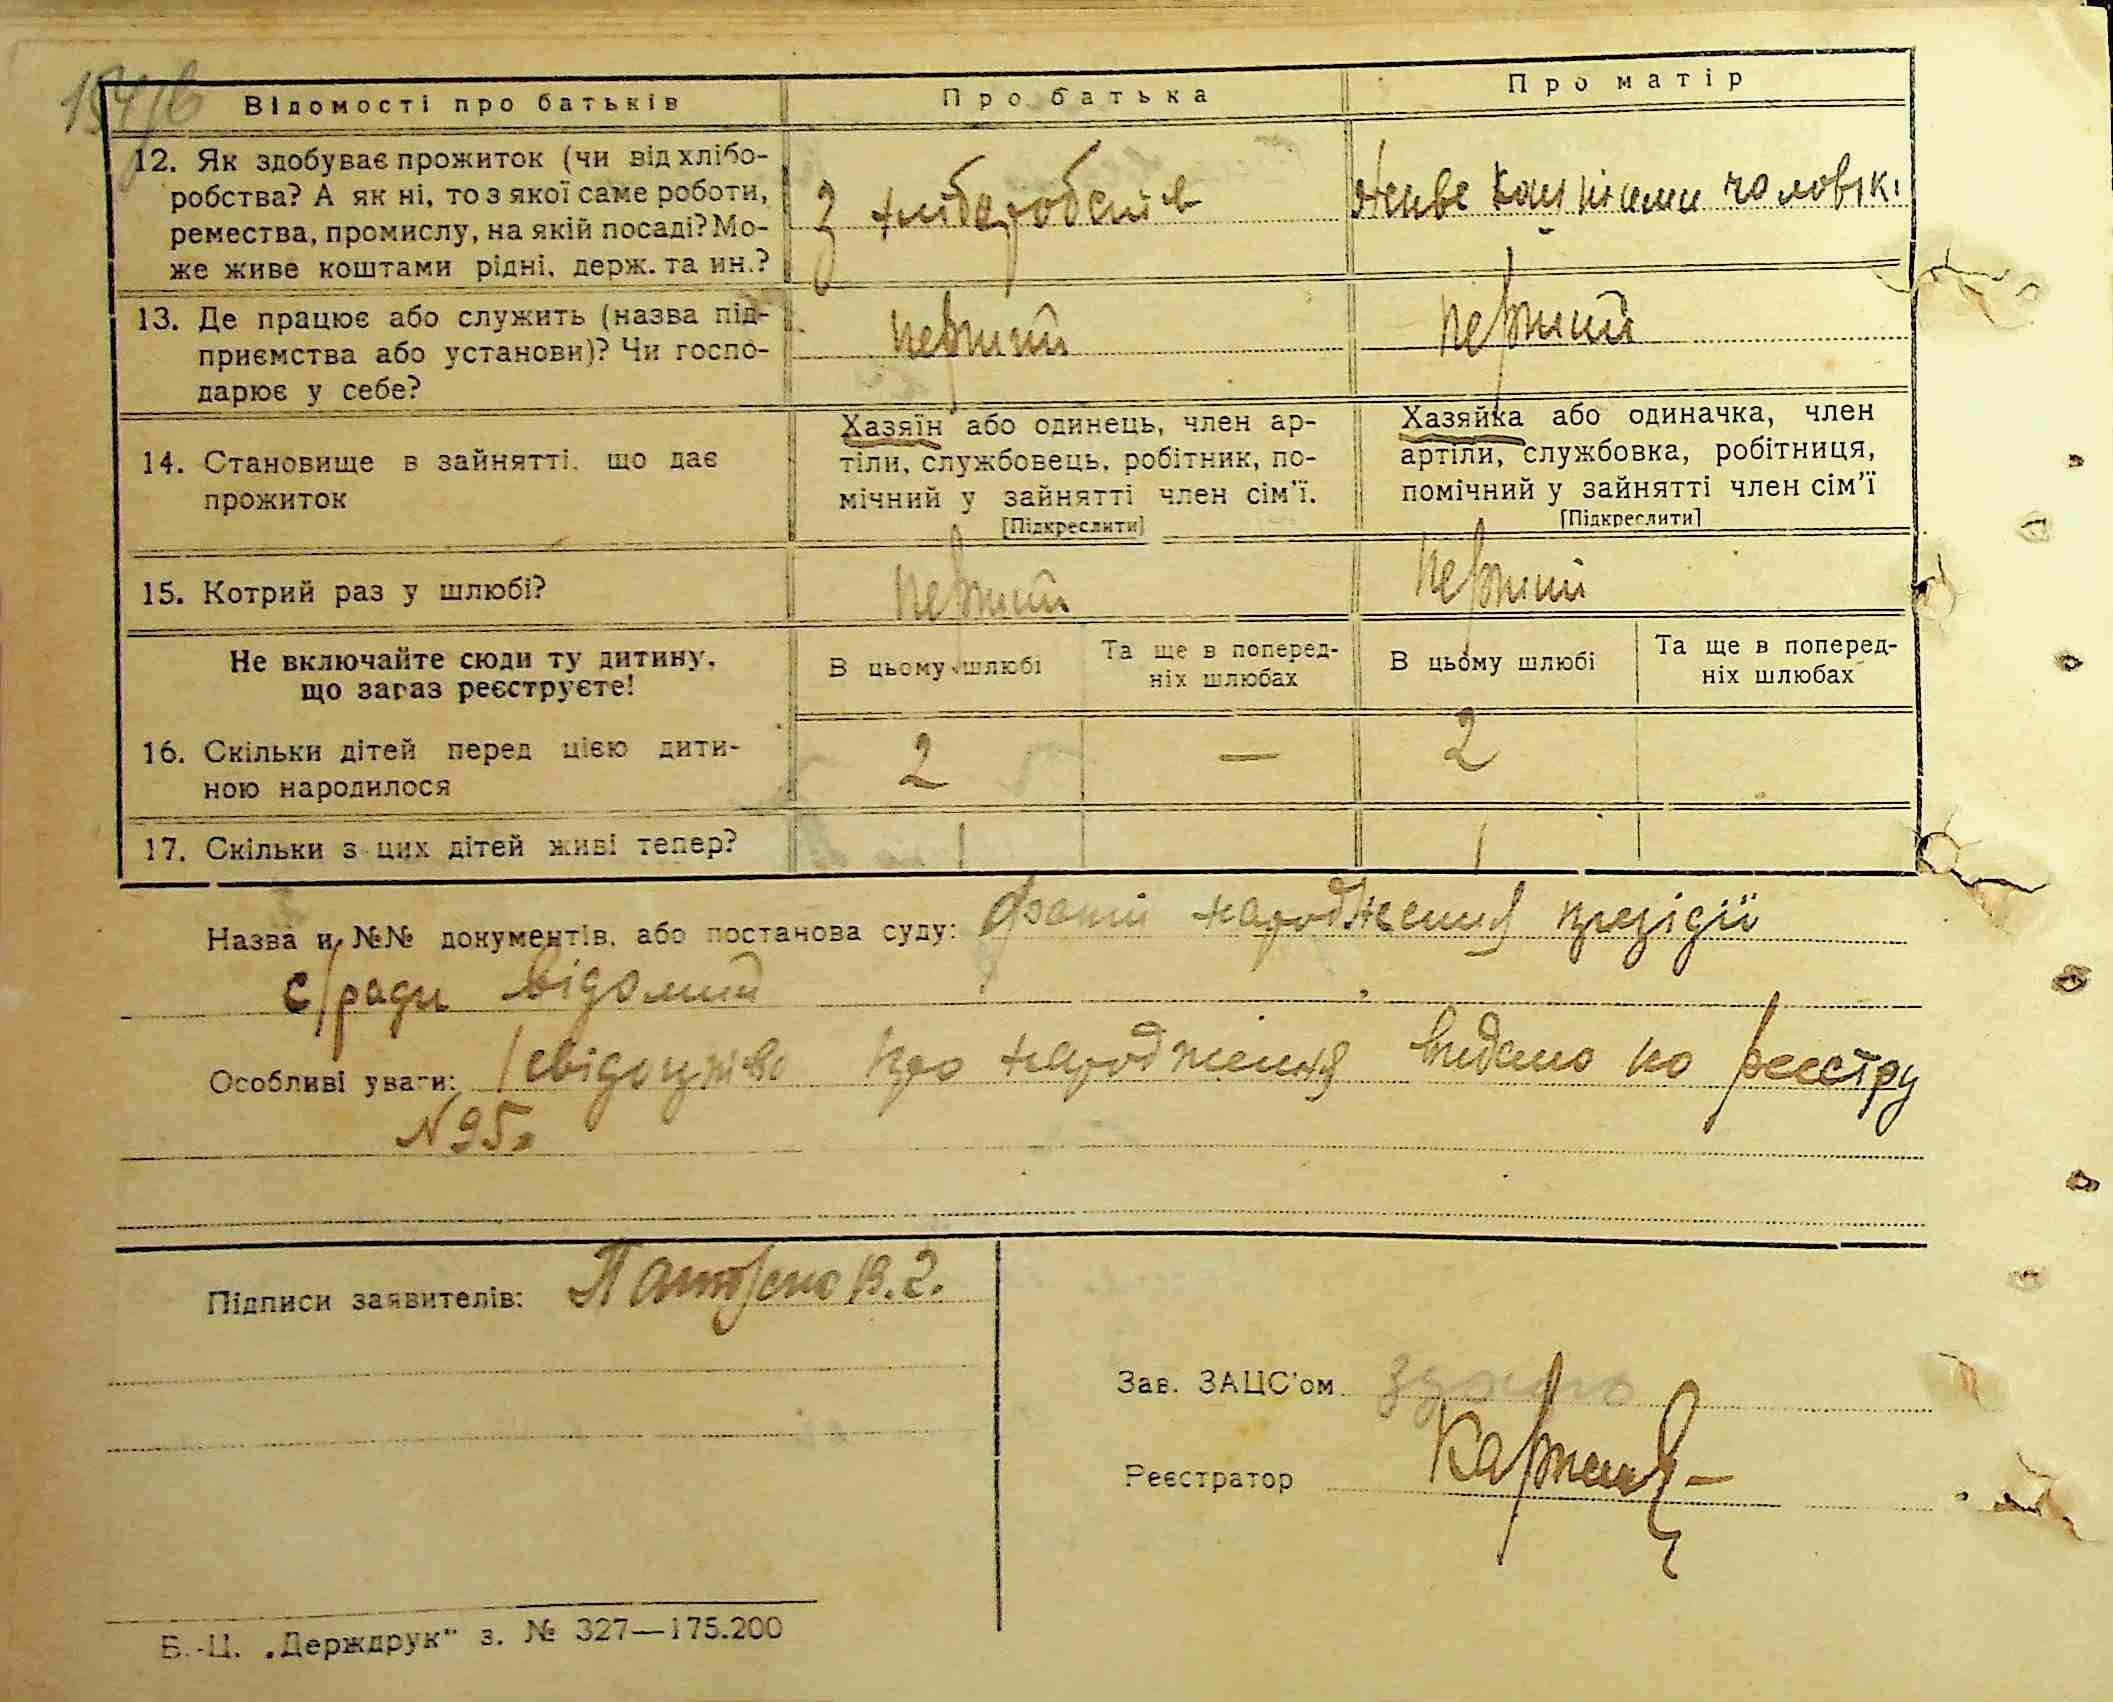 Відомості про батьків
Про батька
Про матір
12. Як здобуває прожиток (чи від хлібо-
робства? А як ні, то з якої саме роботи,
ремества, промислу, на якій посаді? Мо-
же живе коштами рідні, держ. та ин.?
З
Живе коштами чоловік.
13. Де працює або служить (назва під-
приємства або установи)? Чи госпо-
дарює у себе?
перший
перший
14. Становище в зайнятті, що дає
прожиток
Хазяїн або одинець, член ар-
тіли, службовець, робітник, по-
мічний у зайнятті член сім'ї.
[Підкреслити]
Хазяйка або одиначка, член
артіли, службовка, робітниця,
помічний у зайнятті член сім'ї
[Підкреслити]
15. Котрий раз у шлюбі?
перший
перший
Не включайте сюди ту дитину,
що зараз реєструєте!
В цьому шлюбі
Та ще в поперед-
ніх шлюбах
В цьому шлюбі
Та ще в поперед-
ніх шлюбах
16. Скільки дітей перед цією дити-
ною народилося
2
—
2
17. Скільки з цих дітей живі тепер?
1
1
Назва и №№ документів, або постанова суду: народження президії
с/ради відомий
Особливі уваги: про народження видано по реєстру
№95.
Підписи заявителів:
Зав. ЗАЦС'ом
Реєстратор
Б.-Ц. „Держдрук" з. № 327—175.200